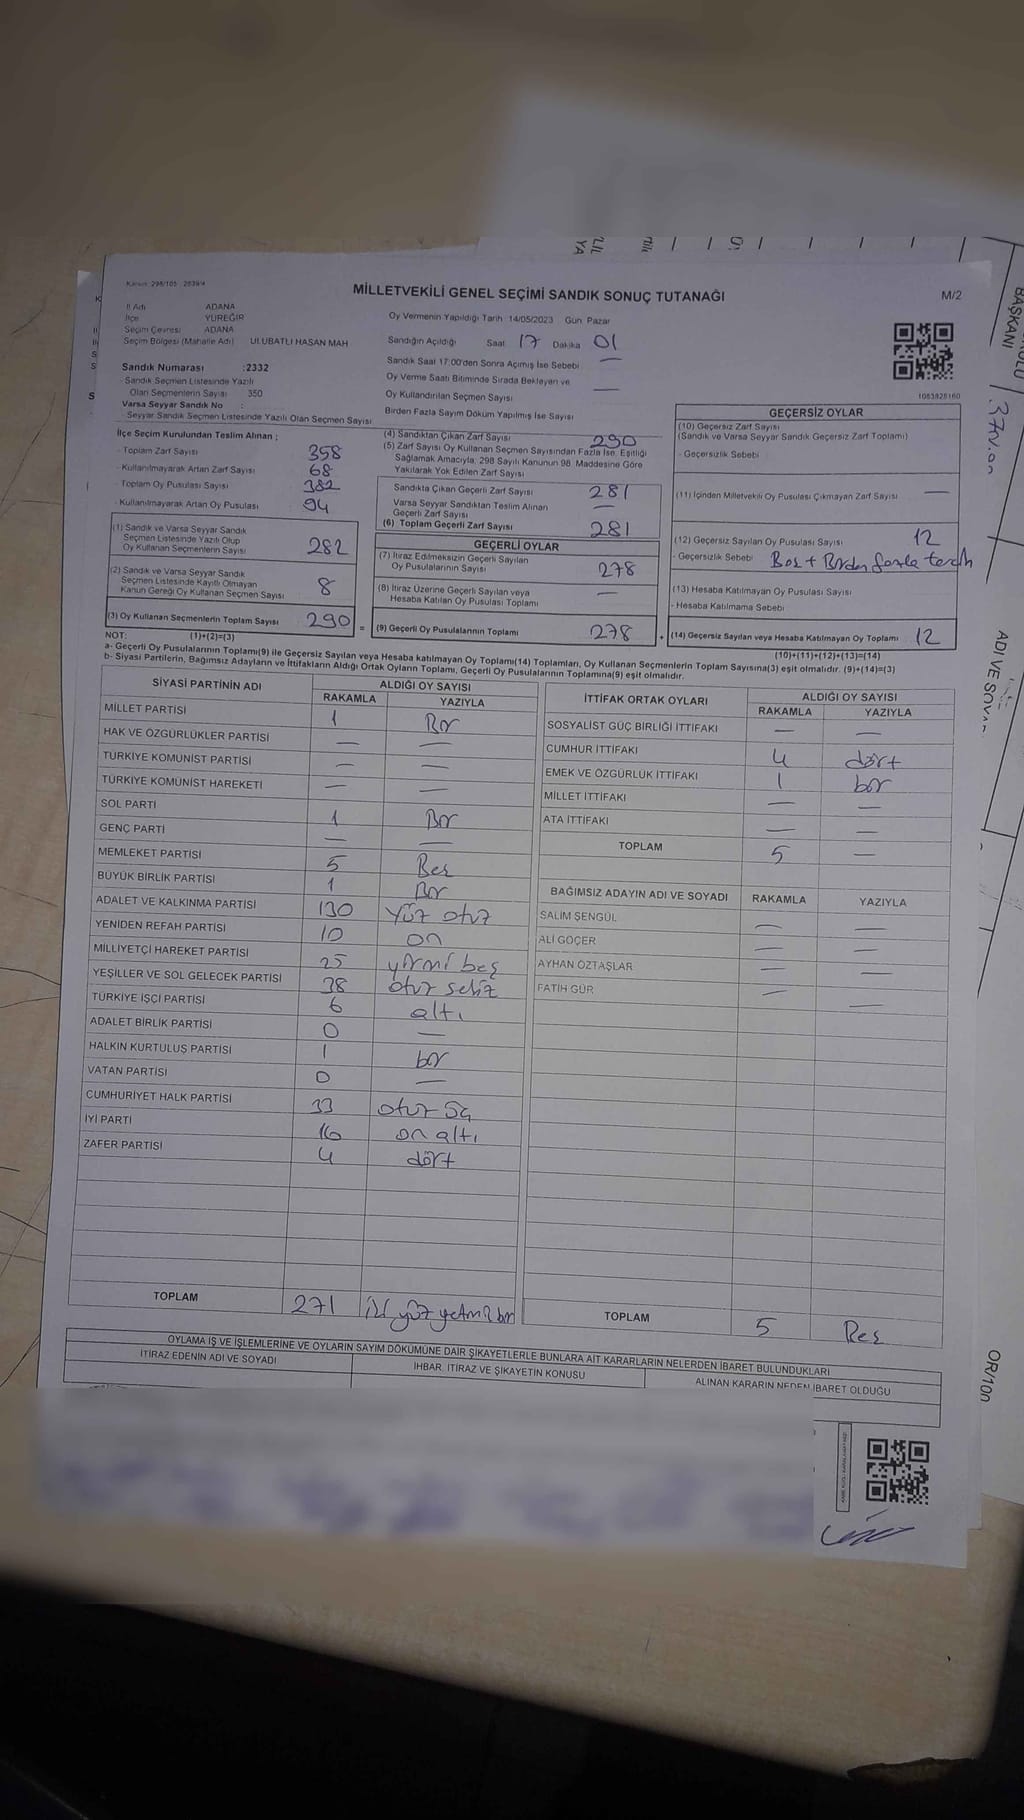 Karar: 298/105 - 2839/4
MİLLETVEKİLİ GENEL SEÇİMİ SANDIK SONUÇ TUTANAĞI
M/2
İl Adı ADANA
İlçe YÜREĞİR
Seçim Çevresi ADANA
Seçim Bölgesi (Mahalle Adı) ULUBATLI HASAN MAH
Sandık Numarası :2332
- Sandık Seçmen Listesinde Yazılı
Olan Seçmenlerin Sayısı 350
Varsa Seyyar Sandık No :
- Seyyar Sandık Seçmen Listesinde Yazılı Olan Seçmen Sayısı
Oy Vermenin Yapıldığı Tarih 14/05/2023 Gün Pazar
Sandığın Açıldığı Saat 17 Dakika 01
Sandık Saat 17:00'den Sonra Açımış İse Sebebi —
Oy Verme Saati Bitiminde Sırada Bekleyen ve
Oy Kullandırılan Seçmen Sayısı —
Birden Fazla Sayım Döküm Yapılmış İse Sayısı
1083828160
İlçe Seçim Kurulundan Teslim Alınan ;
- Toplam Zarf Sayısı 358
- Kullanılmayarak Artan Zarf Sayısı 68
- Toplam Oy Pusulası Sayısı 382
- Kullanılmayarak Artan Oy Pusulası 94
(1) Sandık ve Varsa Seyyar Sandık
Seçmen Listesinde Yazılı Olup
Oy Kullanan Seçmenlerin Sayısı 282
(2) Sandık ve Varsa Seyyar Sandık
Seçmen Listesinde Kayıtlı Olmayan
Kanun Gereği Oy Kullanan Seçmen Sayısı 8
(3) Oy Kullanan Seçmenlerin Toplam Sayısı 290 =
(4) Sandıktan Çıkan Zarf Sayısı 290
(5) Zarf Sayısı Oy Kullanan Seçmen Sayısından Fazla İse, Eşitliği
Sağlamak Amacıyla; 298 Sayılı Kanunun 98. Maddesine Göre
Yakılarak Yok Edilen Zarf Sayısı
Sandıkta Çıkan Geçerli Zarf Sayısı 281
Varsa Seyyar Sandıktan Teslim Alınan
Geçerli Zarf Sayısı —
(6) Toplam Geçerli Zarf Sayısı 281
GEÇERLİ OYLAR
(7) İtiraz Edilmeksizin Geçerli Sayılan
Oy Pusulalarının Sayısı 278
(8) İtiraz Üzerine Geçerli Sayılan veya
Hesaba Katılan Oy Pusulası Toplamı —
(9) Geçerli Oy Pusulalarının Toplamı 278 +
GEÇERSİZ OYLAR
(10) Geçersiz Zarf Sayısı
(Sandık ve Varsa Seyyar Sandık Geçersiz Zarf Toplamı)
- Geçersizlik Sebebi
(11) İçinden Milletvekili Oy Pusulası Çıkmayan Zarf Sayısı —
(12) Geçersiz Sayılan Oy Pusulası Sayısı 12
- Geçersizlik Sebebi Boş + Birden fazla tercih
(13) Hesaba Katılmayan Oy Pusulası Sayısı
- Hesaba Katılmama Sebebi
(14) Geçersiz Sayılan veya Hesaba Katılmayan Oy Toplamı 12
NOT: (1)+(2)=(3)
(10)+(11)+(12)+(13)=(14)
a- Geçerli Oy Pusulalarının Toplamı(9) ile Geçersiz Sayılan veya Hesaba katılmayan Oy Toplamı(14) Toplamları, Oy Kullanan Seçmenlerin Toplam Sayısına(3) eşit olmalıdır. (9)+(14)=(3)
b- Siyasi Partilerin, Bağımsız Adayların ve İttifakların Aldığı Ortak Oyların Toplamı, Geçerli Oy Pusulalarının Toplamına(9) eşit olmalıdır.
SİYASİ PARTİNİN ADI ALDIĞI OY SAYISI
RAKAMLA YAZIYLA
MİLLET PARTİSİ 1 Bir
HAK VE ÖZGÜRLÜKLER PARTİSİ — —
TÜRKİYE KOMÜNİST PARTİSİ — —
TÜRKİYE KOMÜNİST HAREKETİ — —
SOL PARTİ 1 Bir
GENÇ PARTİ — —
MEMLEKET PARTİSİ 5 Beş
BÜYÜK BİRLİK PARTİSİ 1 Bir
ADALET VE KALKINMA PARTİSİ 130 yüz otuz
YENİDEN REFAH PARTİSİ 10 on
MİLLİYETÇİ HAREKET PARTİSİ 25 yirmi beş
YEŞİLLER VE SOL GELECEK PARTİSİ 38 otuz sekiz
TÜRKİYE İŞÇİ PARTİSİ 6 altı
ADALET BİRLİK PARTİSİ 0 —
HALKIN KURTULUŞ PARTİSİ 1 bir
VATAN PARTİSİ 0 —
CUMHURİYET HALK PARTİSİ 33 otuz üç
İYİ PARTİ 16 on altı
ZAFER PARTİSİ 4 dört
TOPLAM 271 iki yüz yetmiş bir
İTTİFAK ORTAK OYLARI ALDIĞI OY SAYISI
RAKAMLA YAZIYLA
SOSYALİST GÜÇ BİRLİĞİ İTTİFAKI — —
CUMHUR İTTİFAKI 4 dört
EMEK VE ÖZGÜRLÜK İTTİFAKI 1 bir
MİLLET İTTİFAKI — —
ATA İTTİFAKI — —
TOPLAM 5 —
BAĞIMSIZ ADAYIN ADI VE SOYADI RAKAMLA YAZIYLA
SALİM ŞENGÜL — —
ALİ GÖÇER — —
AYHAN ÖZTAŞLAR — —
FATİH GÜR — —
TOPLAM 5 Beş
OYLAMA İŞ VE İŞLEMLERİNE VE OYLARIN SAYIM DÖKÜMÜNE DAİR ŞİKAYETLERLE BUNLARA AİT KARARLARIN NELERDEN İBARET BULUNDUKLARI
İTİRAZ EDENİN ADI VE SOYADI İHBAR, İTİRAZ VE ŞİKAYETİN KONUSU ALINAN KARARIN NEDEN İBARET OLDUĞU
BAŞKANI
ADI VE SOYADI
OR/100